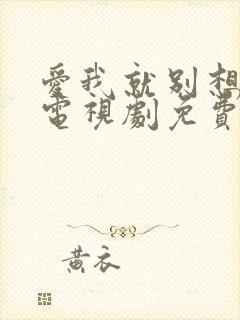 愛我就別想
電視劇免費
黃衣